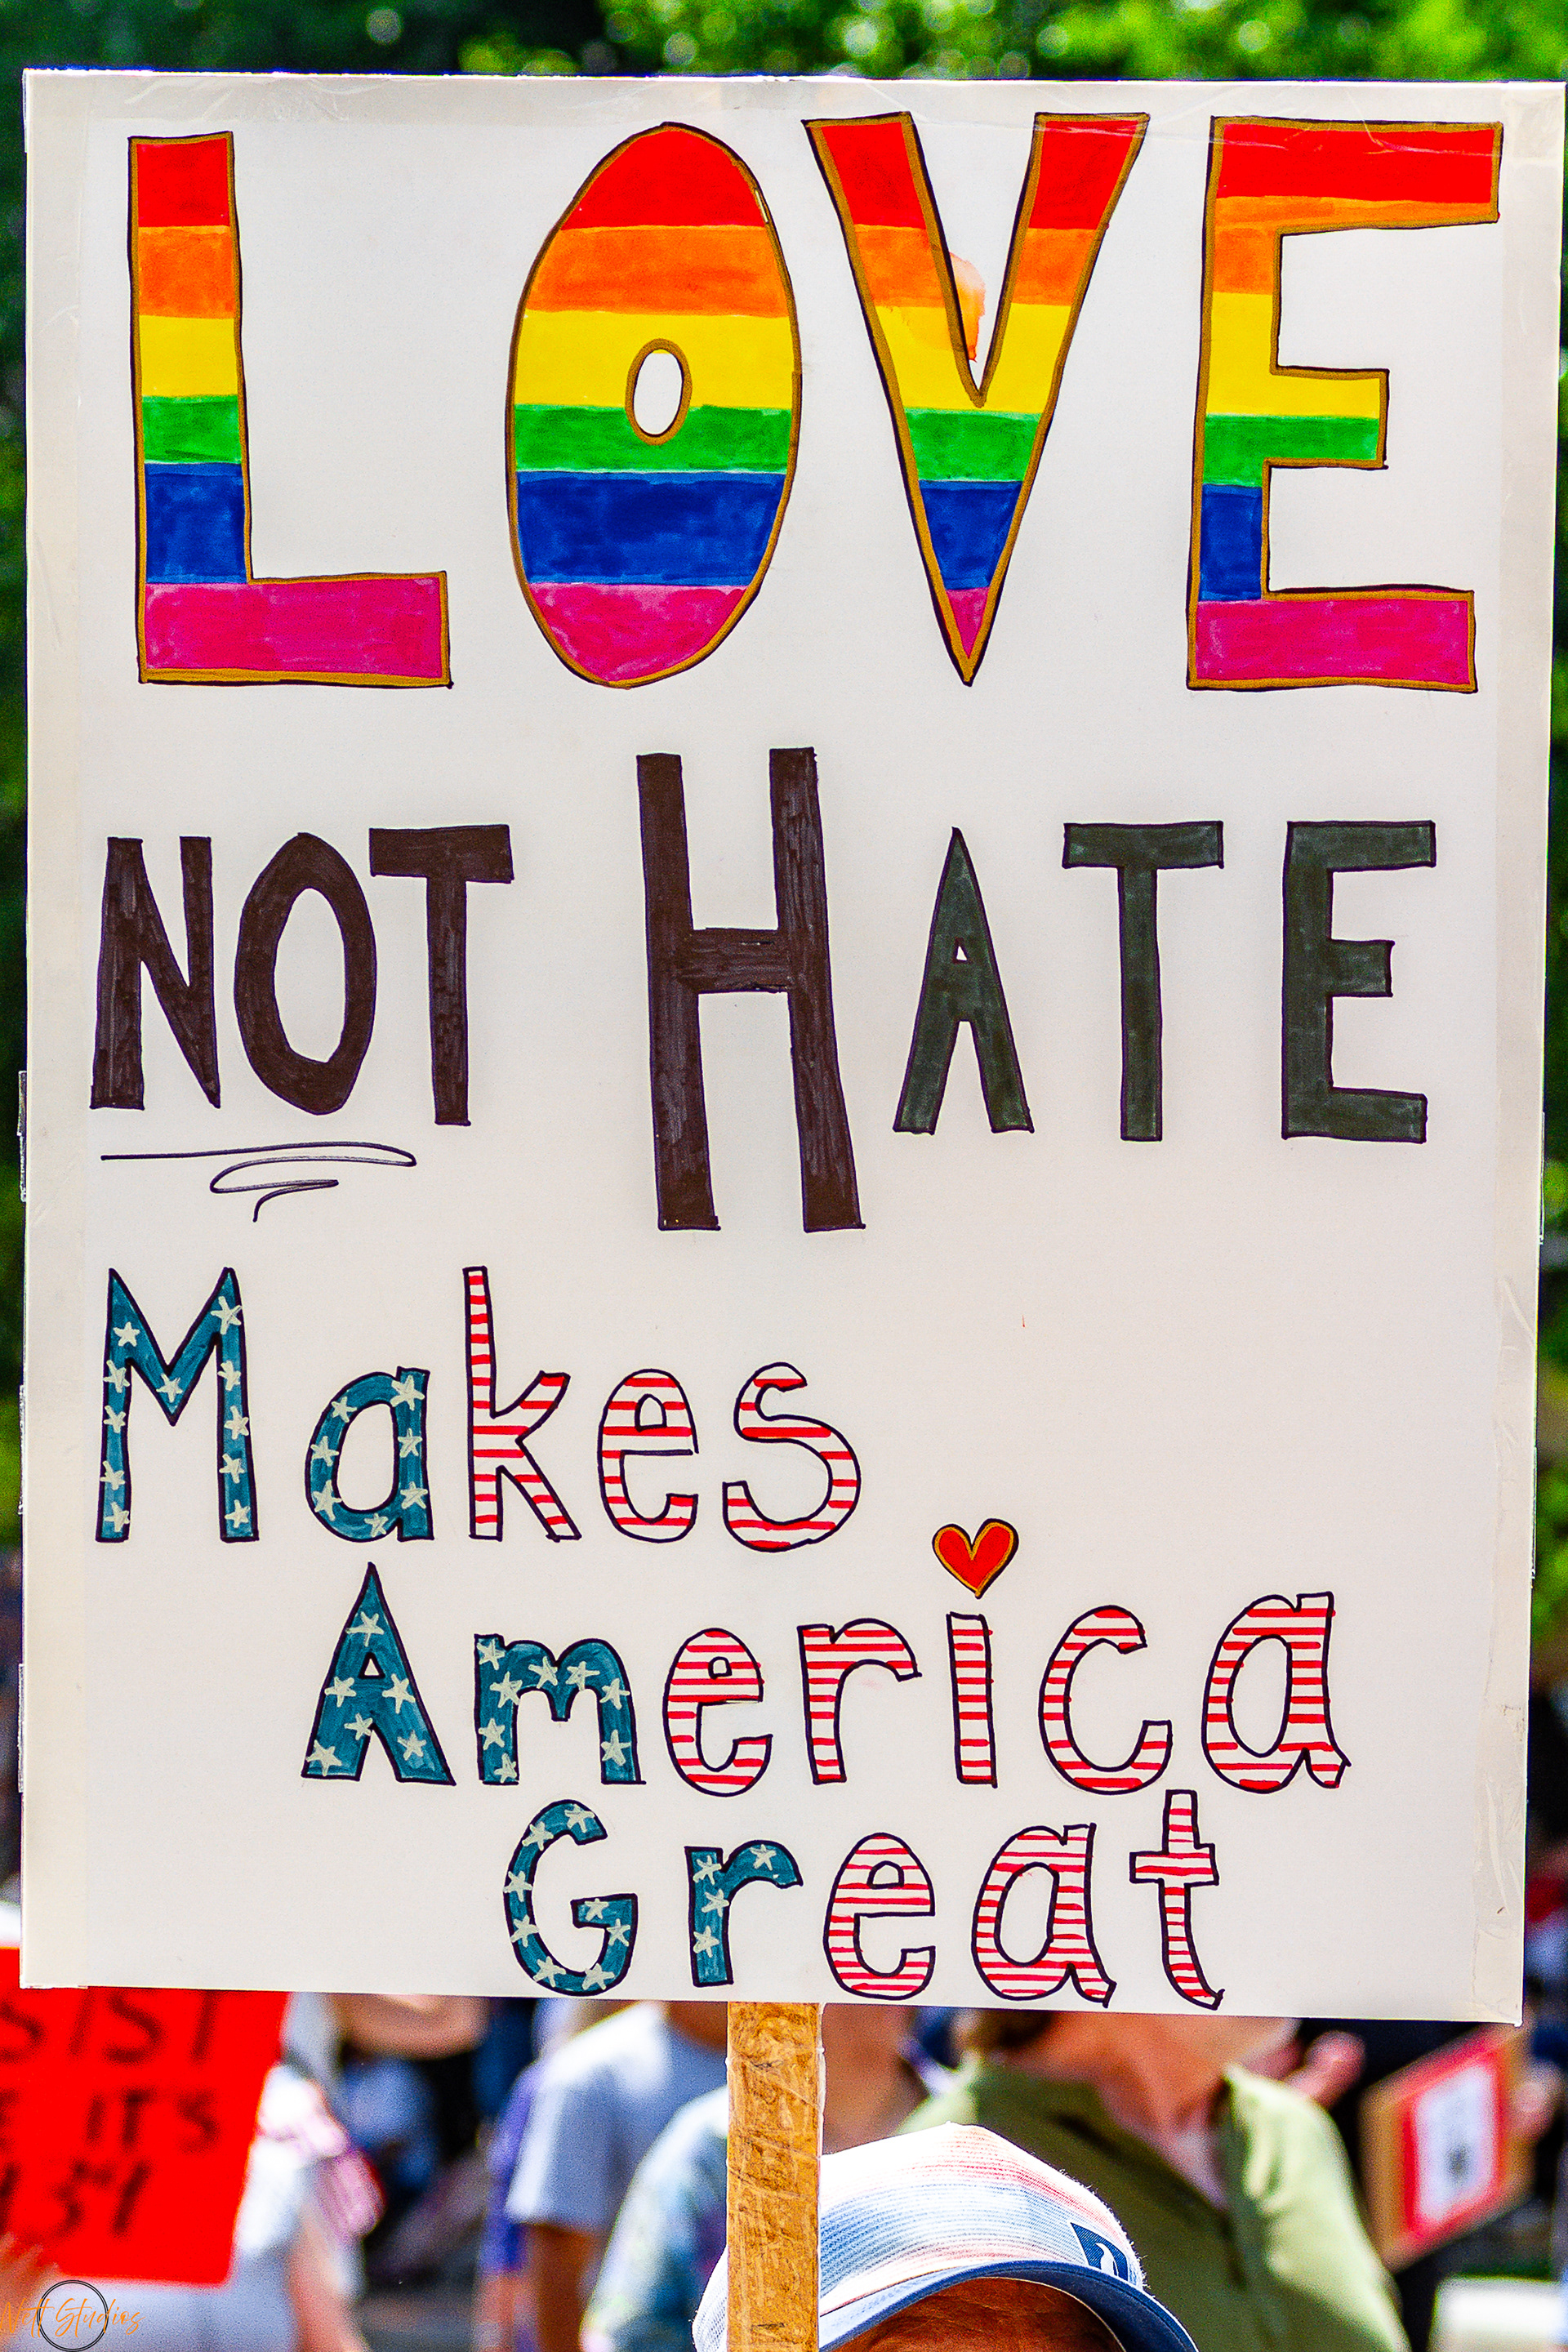 LOVE
NOT HATE
Makes
America
Great
IT'S
Studios